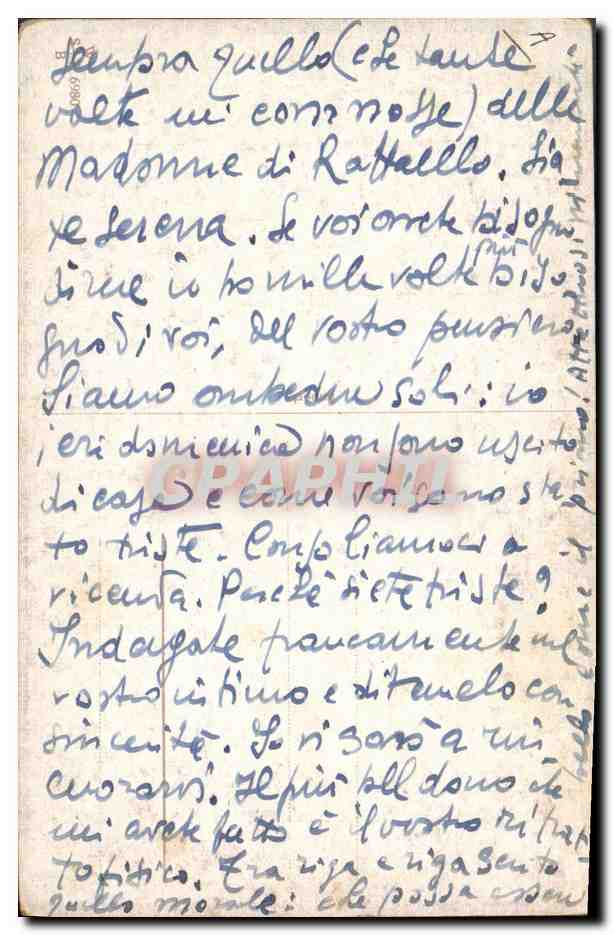 sempra quello (che tante
volte mi commosse) delle
Madonne di Raffaello. Sia
te serena. Se voi avete bisogno
di me io ho mille volte più biso
gno di voi, del vostro pensiero.
Siamo ambedue soli: io
ieri domenica non sono uscito
di casa e come voi sono sta
to triste. Consoliamoci a
vicenda. Perchè siete triste?
Indagate francamente nel
vostro intimo e ditemelo con
sincerità. Io vi sarò a rin
cuorarvi. Il più bel dono che
mi avete fatto è il vostro ritrat
to fisico. Tra riga e riga sento
quello morale: che possa essere
bello come il primo! Affettuosissimamente
A
CPAPHIL